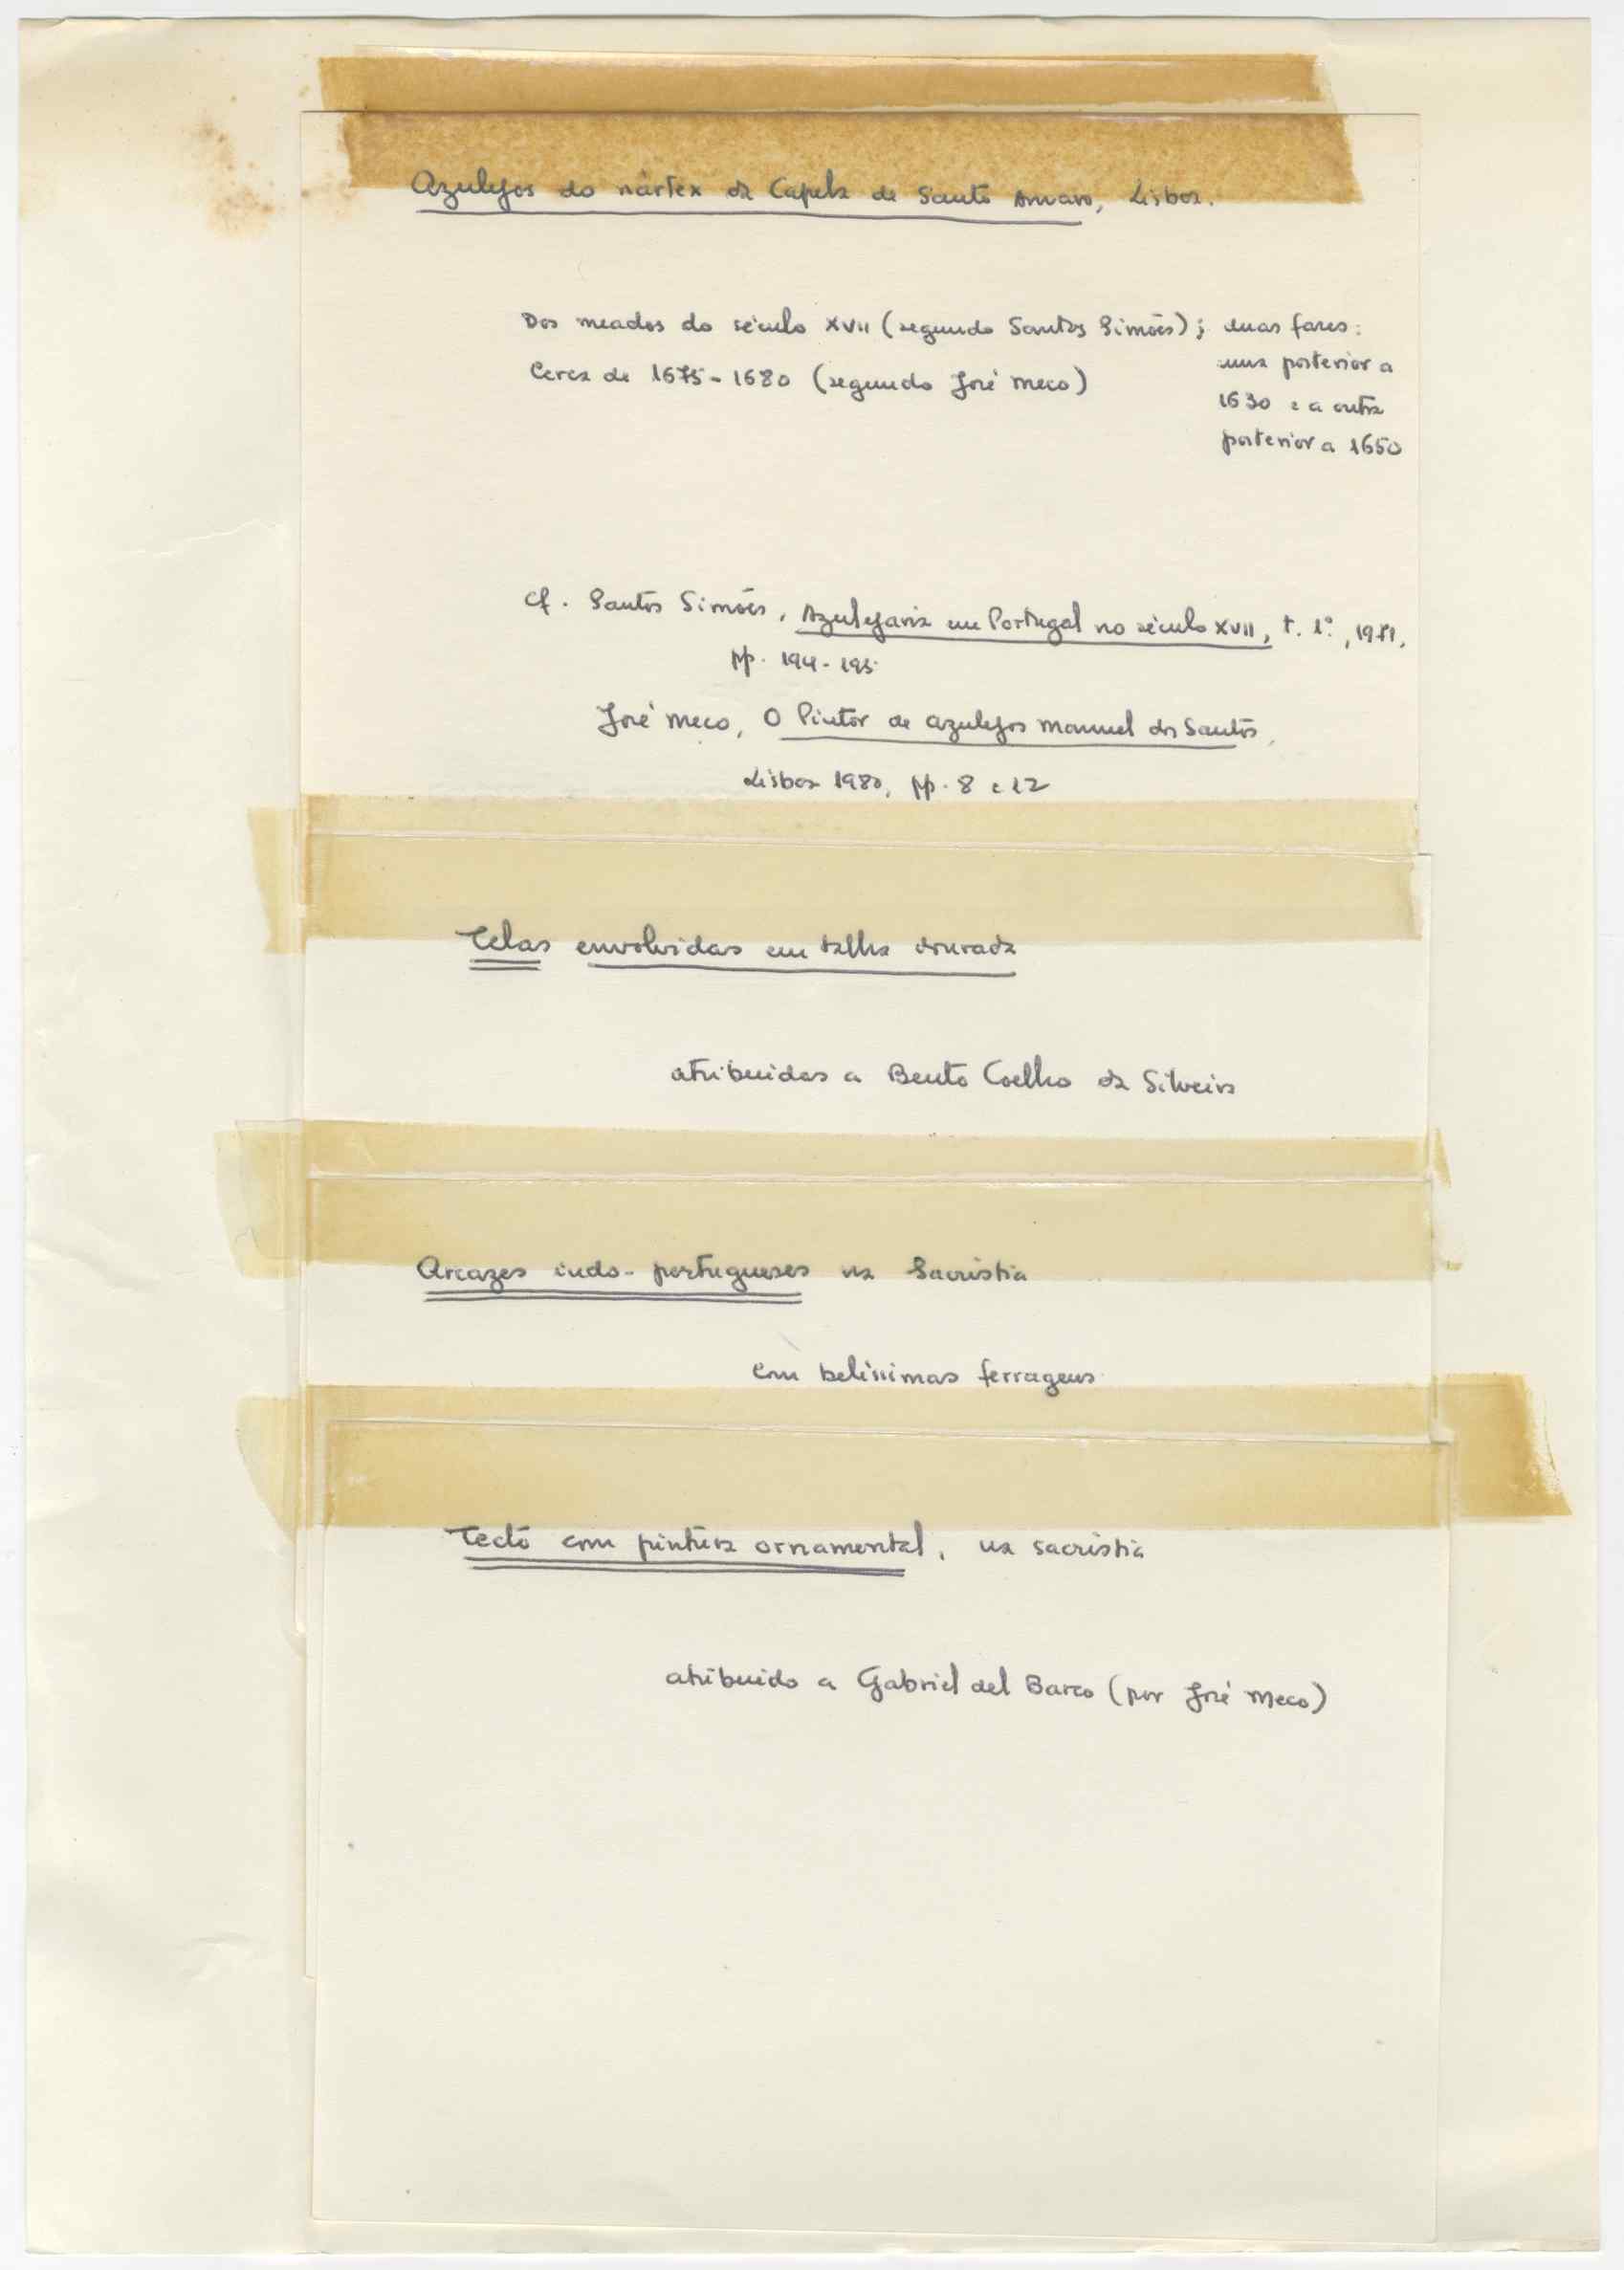 Azulejos do nártex da Capela de Santo Amaro, Lisboa.
Dos meados do século XVII (segundo Santos Simões); duas fases:
uma posterior a
Cerca de 1675-1680 (segundo José Meco)
1630 e a outra
posterior a 1650
Cf. Santos Simões, Azulejaria em Portugal no século XVII, t. 1º, 1971,
pp. 194-195
José Meco, O Pintor de azulejos Manuel dos Santos,
Lisboa 1980, pp. 8 e 12
Telas envolvidas em talha dourada
atribuidas a Bento Coelho da Silveira
Arcazes indo-portugueses na Sacristia
com belíssimas ferragens
Tecto com pintura ornamental, na sacristia
atribuido a Gabriel del Barco (por José Meco)